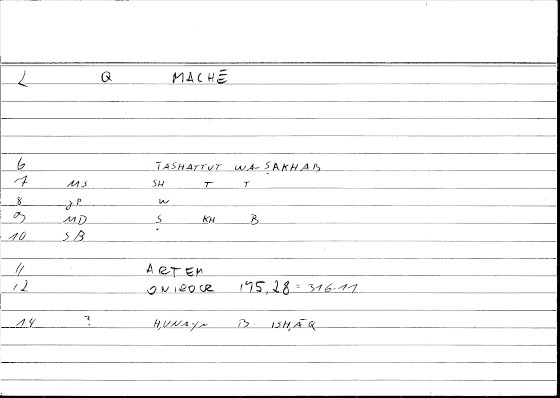 L Q MACHĒ
6 TASHATTUT WA-ṢAKHAB
7 MS SH T T
8 gP W
9 MD Ṣ KH B
10 SB
11 ARTEM
12 ONIROCR 195,28 = 316.11
14 ? ḤUNAYN B. ISḤĀQ